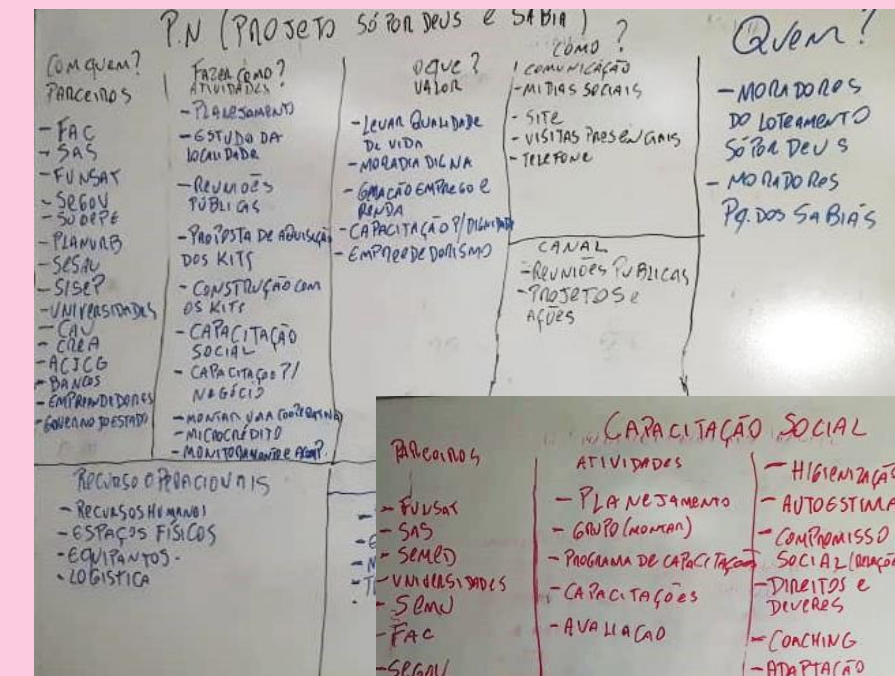 P.N (PROJETO SÓ POR DEUS e SABIA)
COM QUEM?
PARCEIROS
- FAC
- SAS
- FUNSAT
- SEGOV
- SUDEPE
- PLANURB
- SESAU
- SISEP
- UNIVERSIDADES
- CAU
- CREA
- ACICG
- BANCOS
- EMPREENDEDORES
- GOVERNO DO ESTADO
FAZER COMO?
ATIVIDADES?
- PLANEJAMENTO
- ESTUDO DA
LOCALIDADE
- REUNIÕES
PÚBLICAS
- PROPOSTA DE AQUISIÇÃO
DOS KITS
- CONSTRUÇÃO COM
OS KITS
- CAPACITAÇÃO
SOCIAL
- CAPACITAÇÃO P/
NEGÓCIO
- MONTAR UMA COOPERATIVA
- MICROCRÉDITO
- MONITORAMENTO E
O QUE?
VALOR
- LEVAR QUALIDADE
DE VIDA
- MORADIA DIGNA
- GERAÇÃO EMPREGO e
RENDA
- CAPACITAÇÃO P/ DIGNIDADE
- EMPREEDEDORISMO
COMO?
COMUNICAÇÃO
- MIDIAS SOCIAIS
- SITE
- VISITAS PRESENCIAIS
- TELEFONE
CANAL
- REUNIÕES PUBLICAS
- PROJETOS e
AÇÕES
QUEM?
- MORADORES
DO LOTEAMENTO
SÓ POR DEUS
- MORADORES
PQ. DOS SABIÁS
RECURSO OPERACIONAIS
- RECURSOS HUMANOS
- ESPAÇOS FÍSICOS
- EQUIPANTOS -
- LOGISTICA
CAPACITAÇÃO SOCIAL
PARCEIROS
- FUNSAT
- SAS
- SEMED
- UNIVERSIDADES
- SEMU
- FAC
- SEGOV
ATIVIDADES
- PLANEJAMENTO
- GRUPO (MONTAR)
- PROGRAMA DE CAPACITAÇÃO
- CAPACITAÇÕES
- AVALIACAO
- HIGIENIZAÇÃO
- AUTOESTIMA
- COMPROMISSO
SOCIAL (RELAÇÕE
- DIREITOS e
DEVERES
- COACHING
- ADAPTAÇÃO